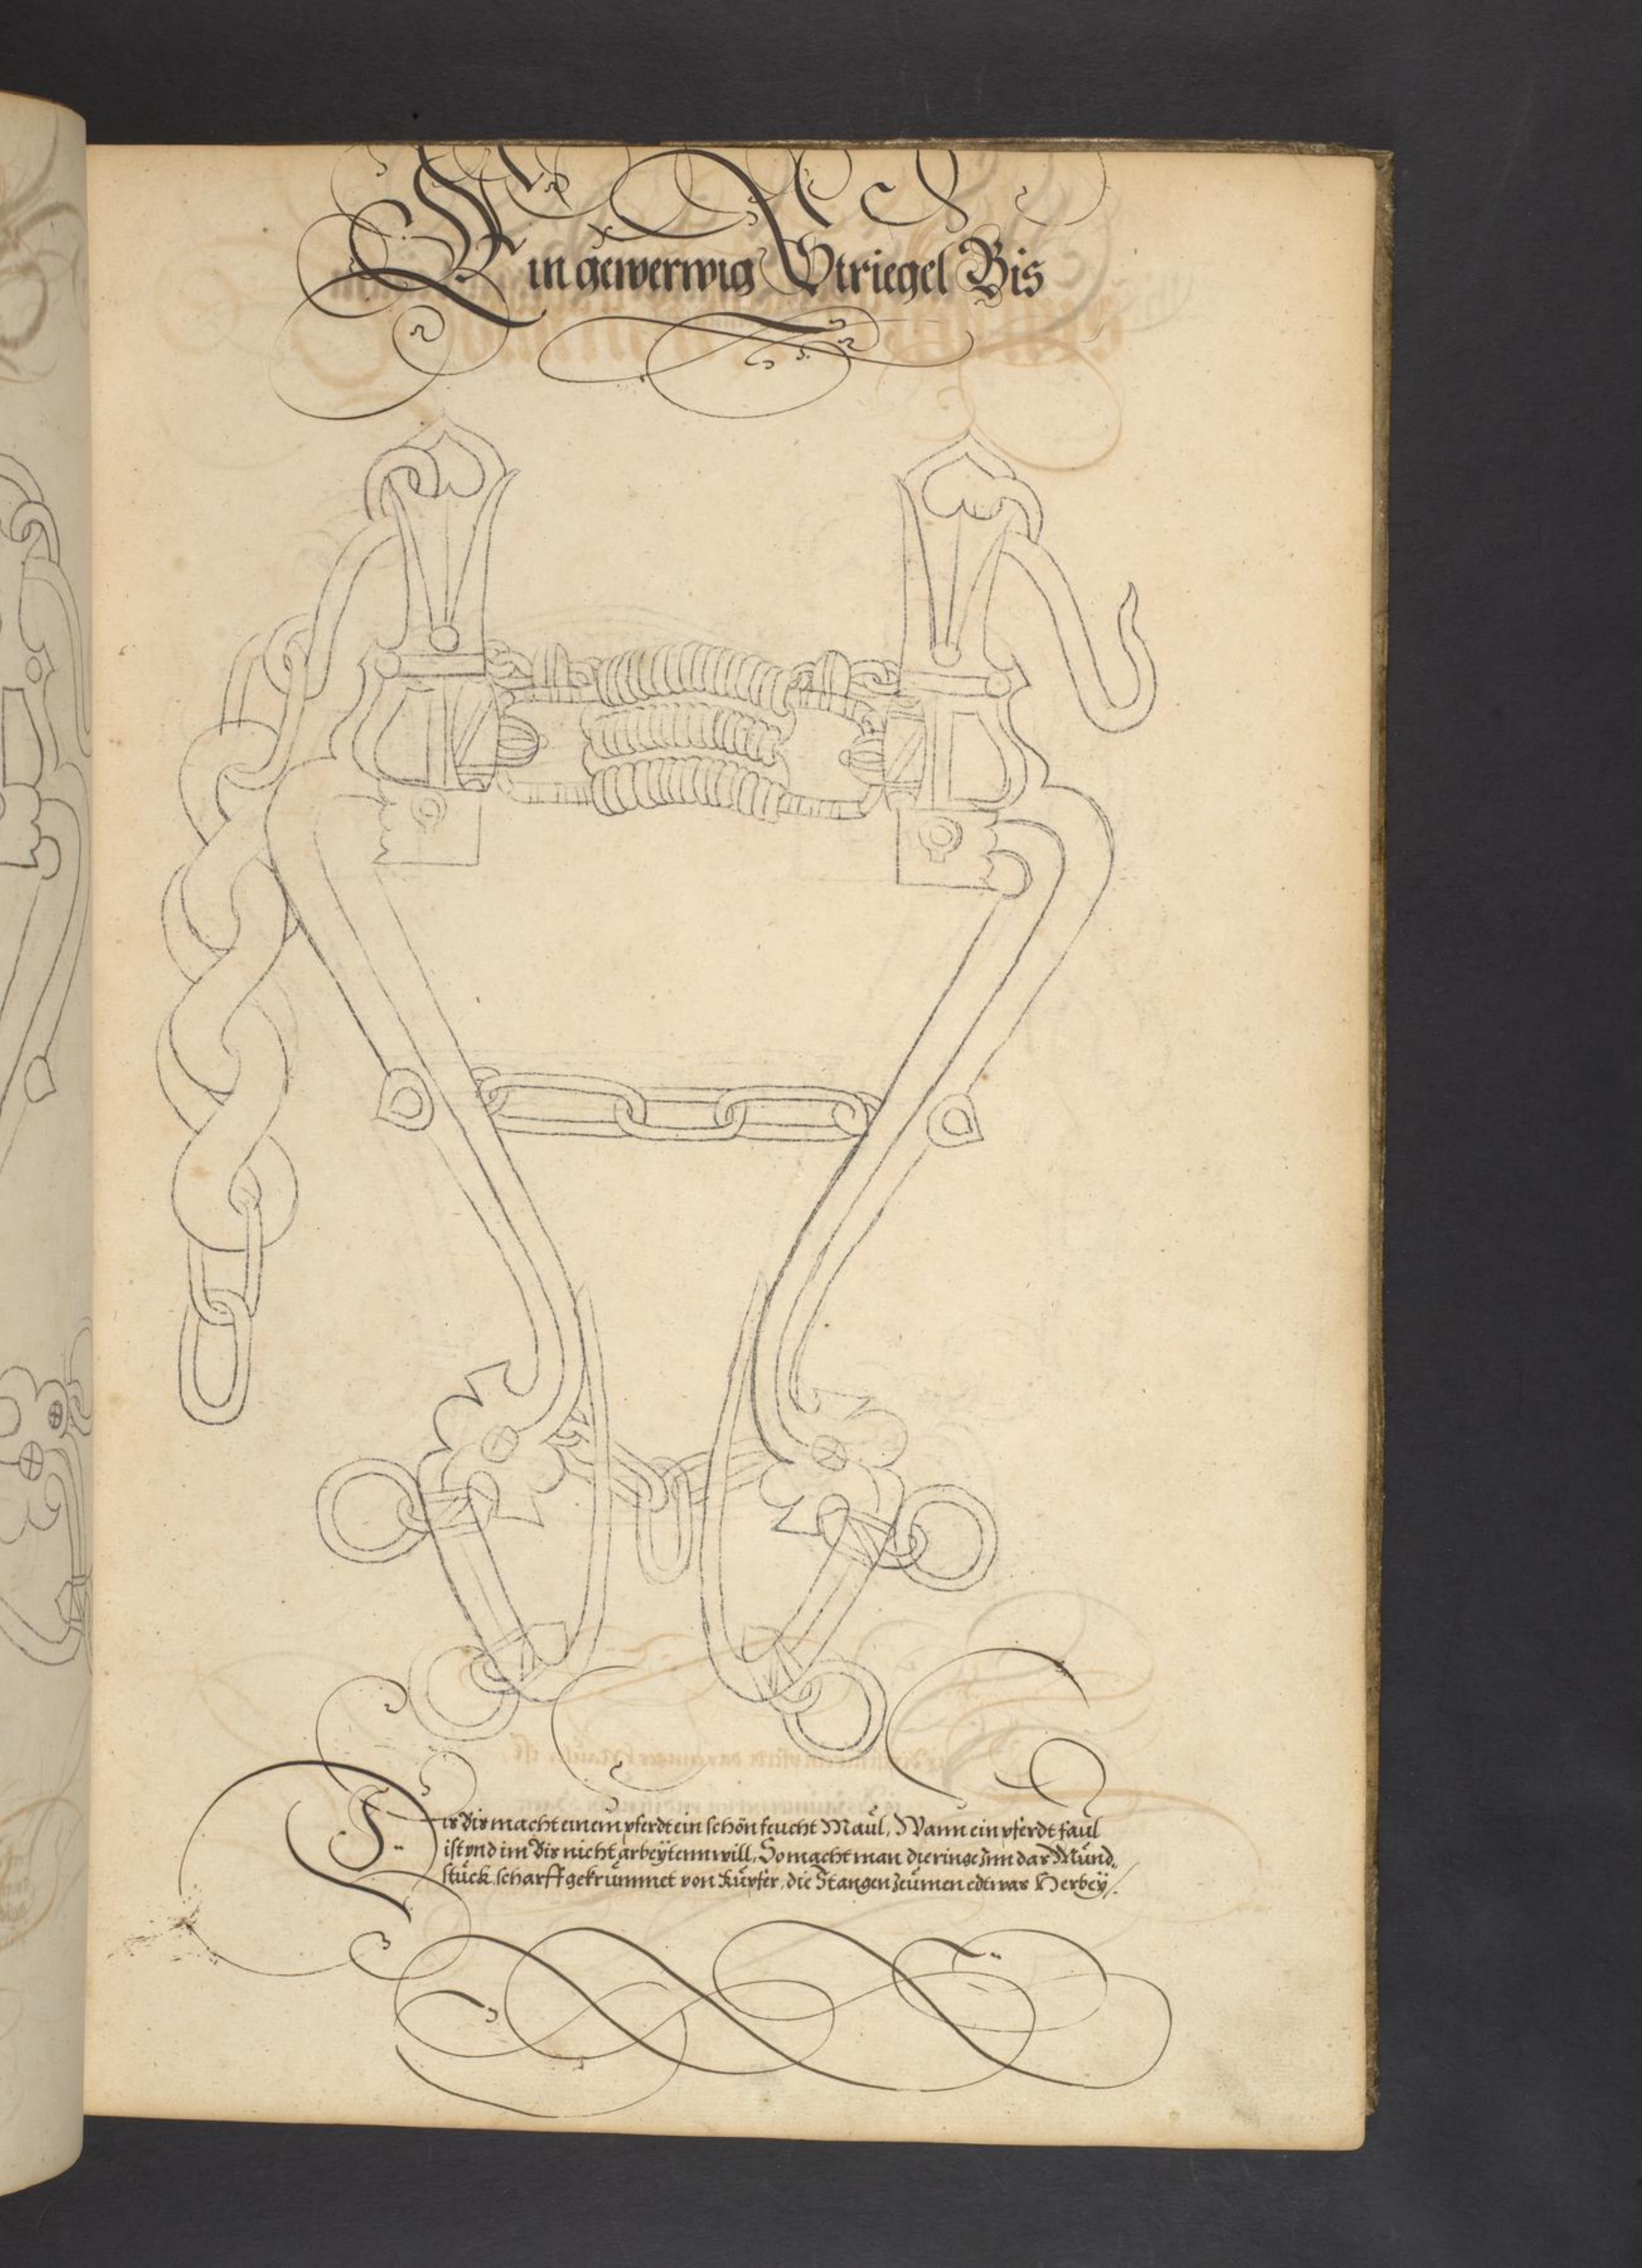 Ein gewerwig Striegel Bis
Dis Bis macht einem pferdt ein schön feucht Maul, Wann ein pferdt faul
ist vnd im Bis nicht arbeytenn will, So macht man die ringe Inn das Mund„
stück scharff gekrümmet von Kupfer, die Stangen Zeümen edtwas Herbey /.